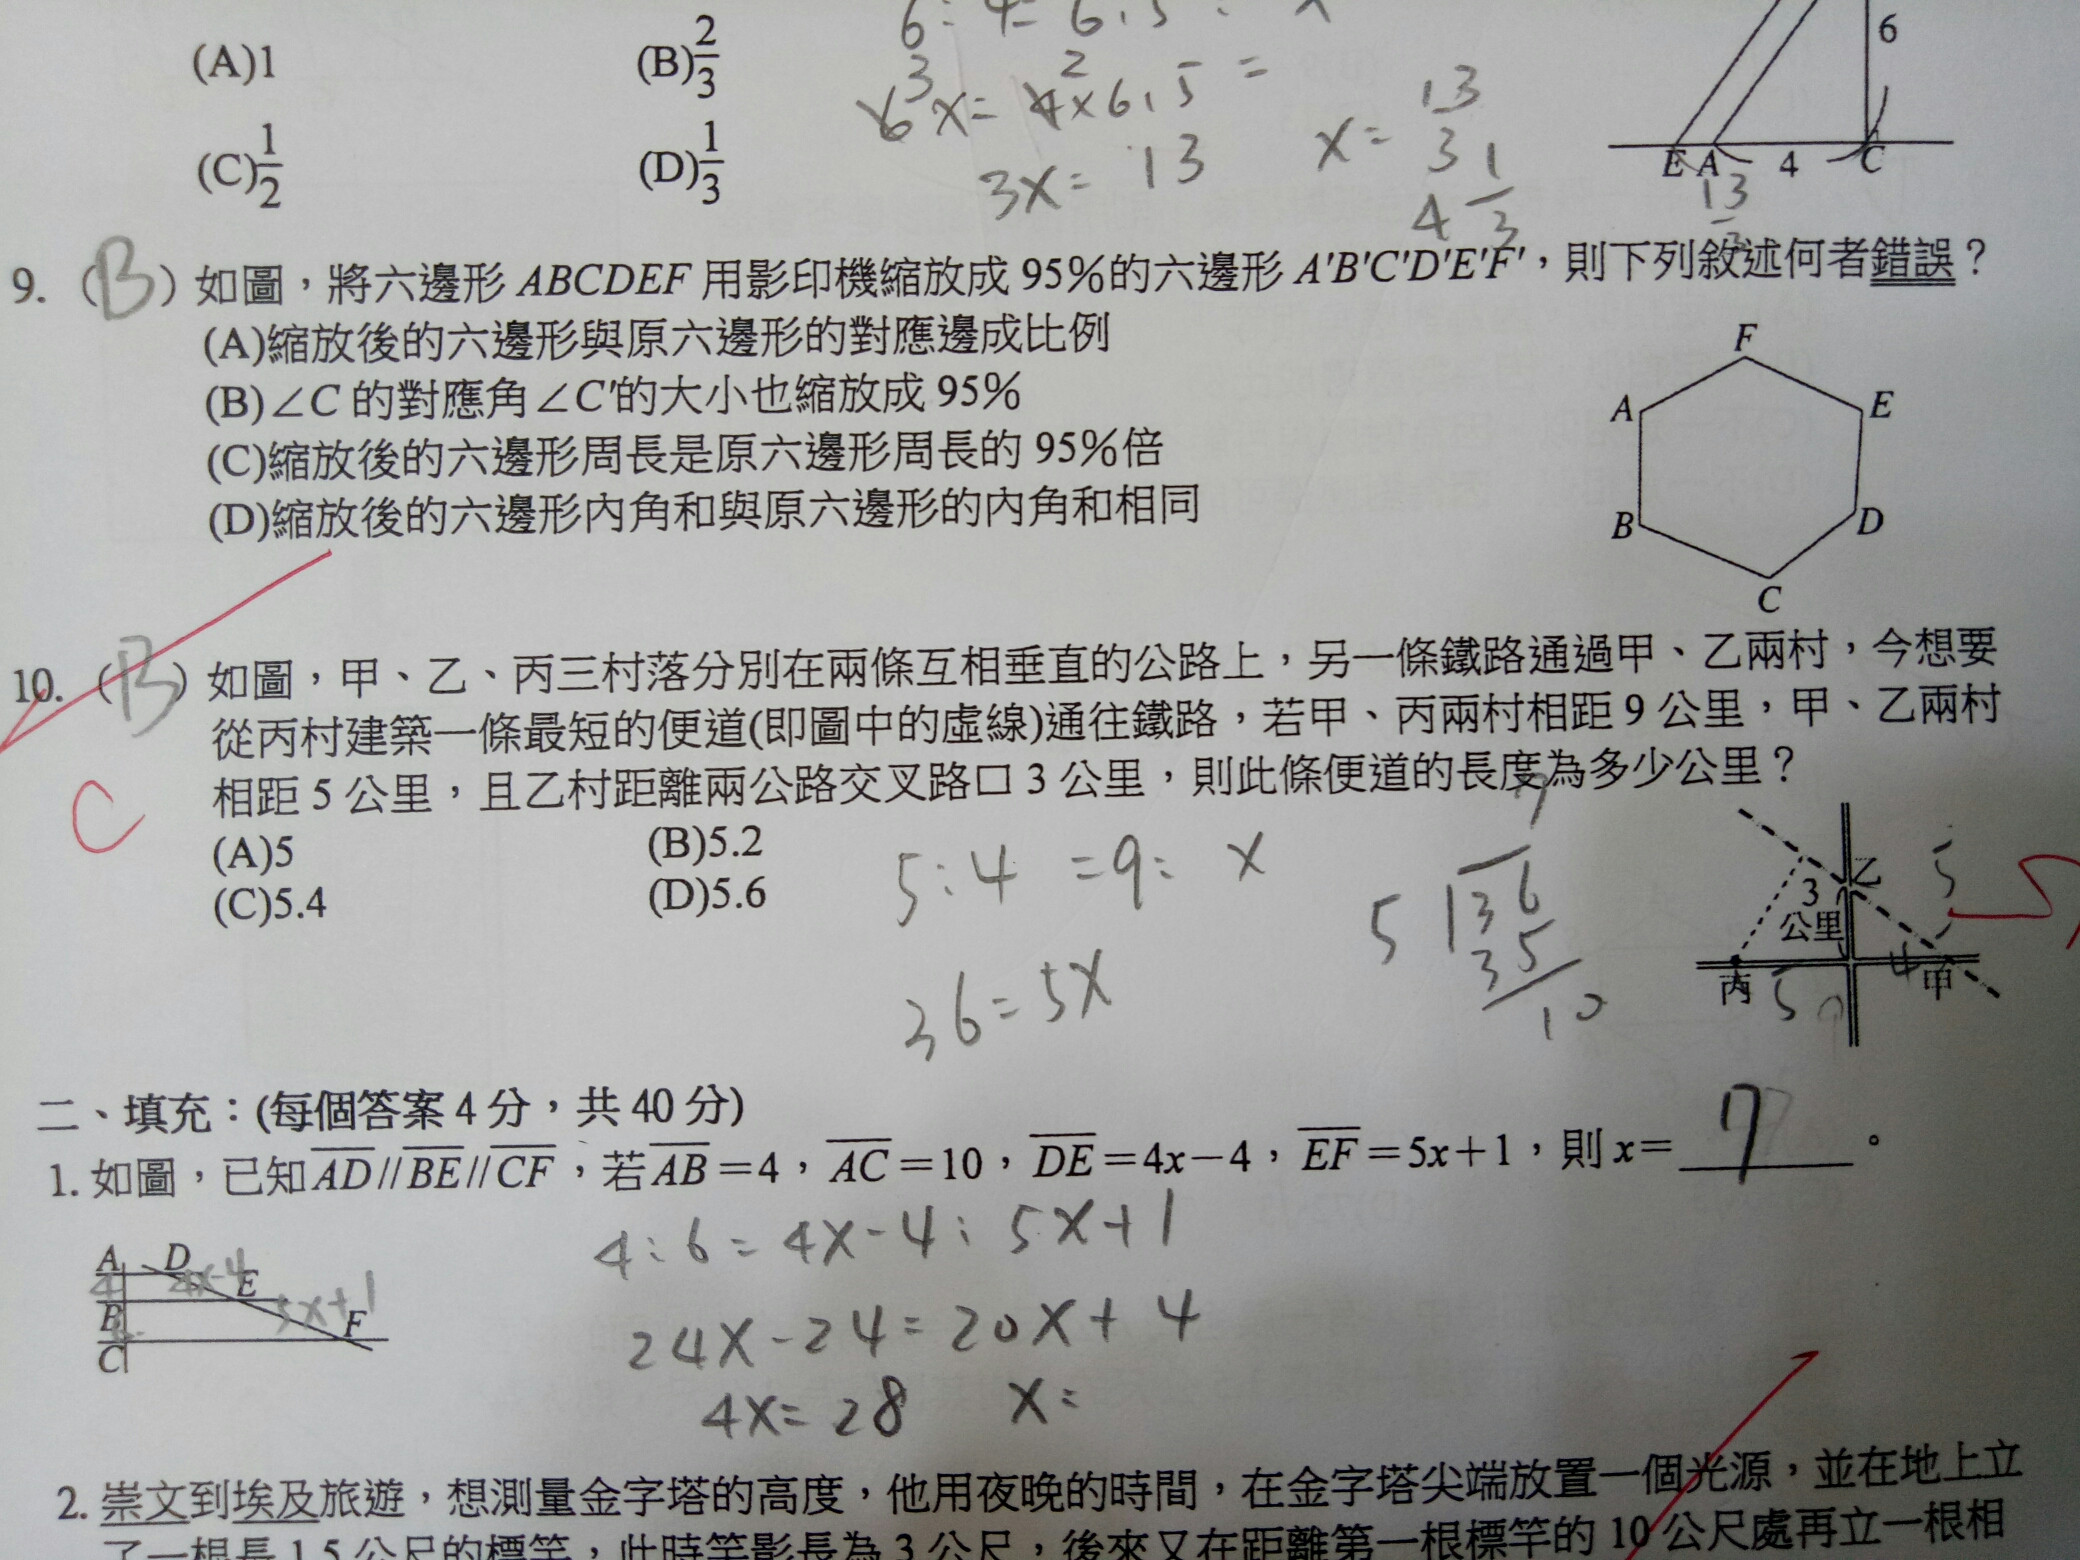 6:4=6.5:x
(A)1 (B)2/3
6x=4x6.5=
3 2
6
(C)1/2 (D)1/3
3x=13 x=13/3
4 1/3
E A 4 C
13
9. (B) 如圖，將六邊形 ABCDEF 用影印機縮放成 95%的六邊形 A'B'C'D'E'F'，則下列敘述何者錯誤？
(A)縮放後的六邊形與原六邊形的對應邊成比例
(B)∠C 的對應角∠C'的大小也縮放成 95%
(C)縮放後的六邊形周長是原六邊形周長的 95%倍
(D)縮放後的六邊形內角和與原六邊形的內角和相同
F
A E
B D
C
10. (B) 如圖，甲、乙、丙三村落分別在兩條互相垂直的公路上，另一條鐵路通過甲、乙兩村，今想要
從丙村建築一條最短的便道(即圖中的虛線)通往鐵路，若甲、丙兩村相距 9 公里，甲、乙兩村
相距 5 公里，且乙村距離兩公路交叉路口 3 公里，則此條便道的長度為多少公里？
C
(A)5 (B)5.2
(C)5.4 (D)5.6
5:4=9:x
36=5x
7
5 36
35
10
乙 5
3
公里
丙 5 9 4 甲
二、填充：(每個答案 4 分，共 40 分)
1. 如圖，已知AD//BE//CF，若AB=4，AC=10，DE=4x−4，EF=5x+1，則 x=7。
4:6=4x-4:5x+1
24x-24=20x+4
4x=28 x=
A D 4x-4
4 E
B 5x+1
6 F
C
2. 崇文到埃及旅遊，想測量金字塔的高度，他用夜晚的時間，在金字塔尖端放置一個光源，並在地上立
了一根長 1.5 公尺的標竿，此時竿影長為 3 公尺，後來又在距離第一根標竿的 10 公尺處再立一根相